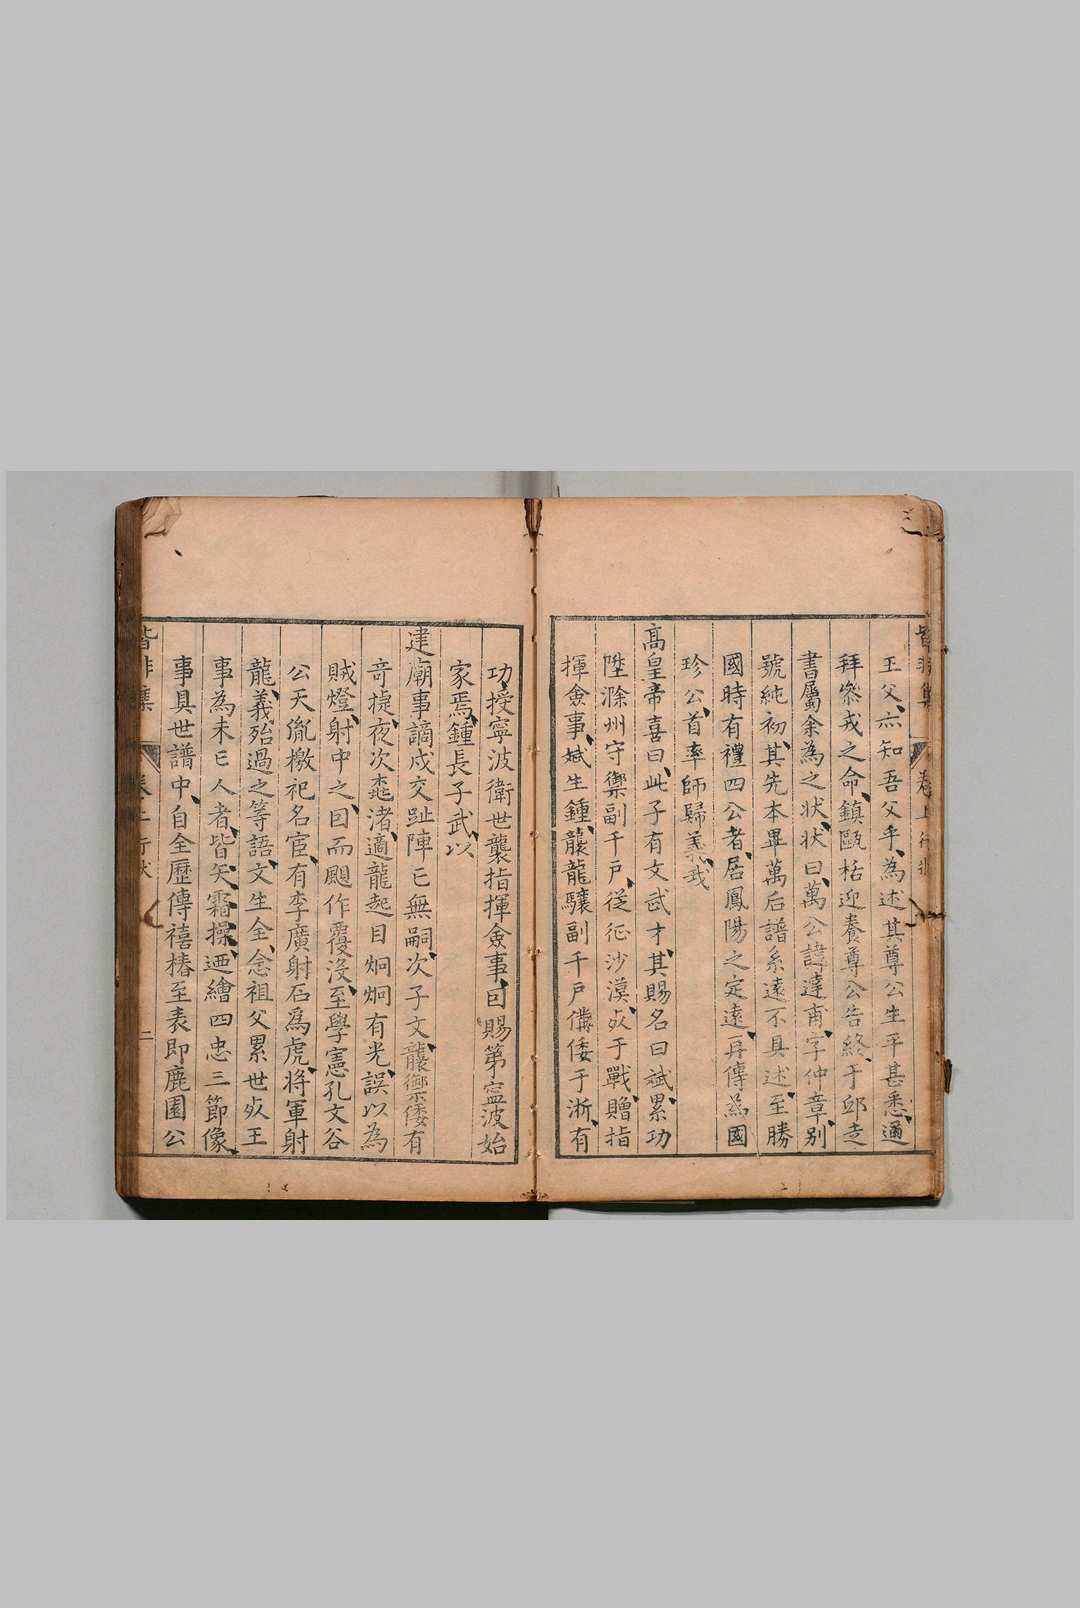 王父、亦知吾父乎、為述其尊公生平甚悉、適
拜叅戎之命、鎮甌栝迎養尊公告終、于邱走
書屬余為之狀、狀曰、萬公諱達甫、字仲章、别
號純初、其先本畢萬后譜系遠不具述、至勝
國時有禮四公者、居鳳陽之定遠、再傳為國
珍公、首率師歸義我
高皇帝喜曰、此子有文武才、其賜名曰斌、累功
陞滁州守禦副千戶、從征沙漠、歿于戰、贈指
揮僉事、斌生鍾、襲龍驤副千戶、備倭于浙、有
功、授寧波衛世襲指揮僉事、因賜第寧波始
家焉、鍾長子武、以
建廟事謫戍交趾陣亡無嗣、次子文、襲禦倭有
奇捷、夜次桃渚、適龍起目炯炯有光、誤以為
賊燈、射中之、因而颶作覆沒、至學憲孔文谷
公天胤檄祀名宦、有李廣射石為虎、將軍射
龍、義殆過之等語、文生全、念祖父累世歿王
事為未亡人者、皆矢霜操、廼繪四忠三節像、
事具世譜中、自全歷傳禧椿至表即鹿園公
卷上 行狀
卷上 行狀 二